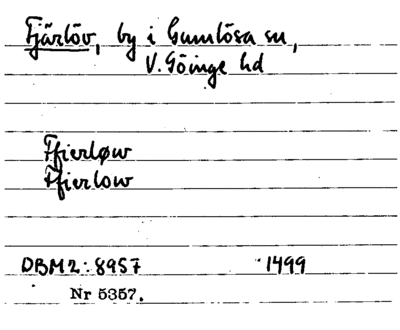 Fjärlöv, by i Gumlösa sn,
V. Göinge hd
Ffierløw
Ffierlow
DBM 2: 8957 1499
Nr 5357.